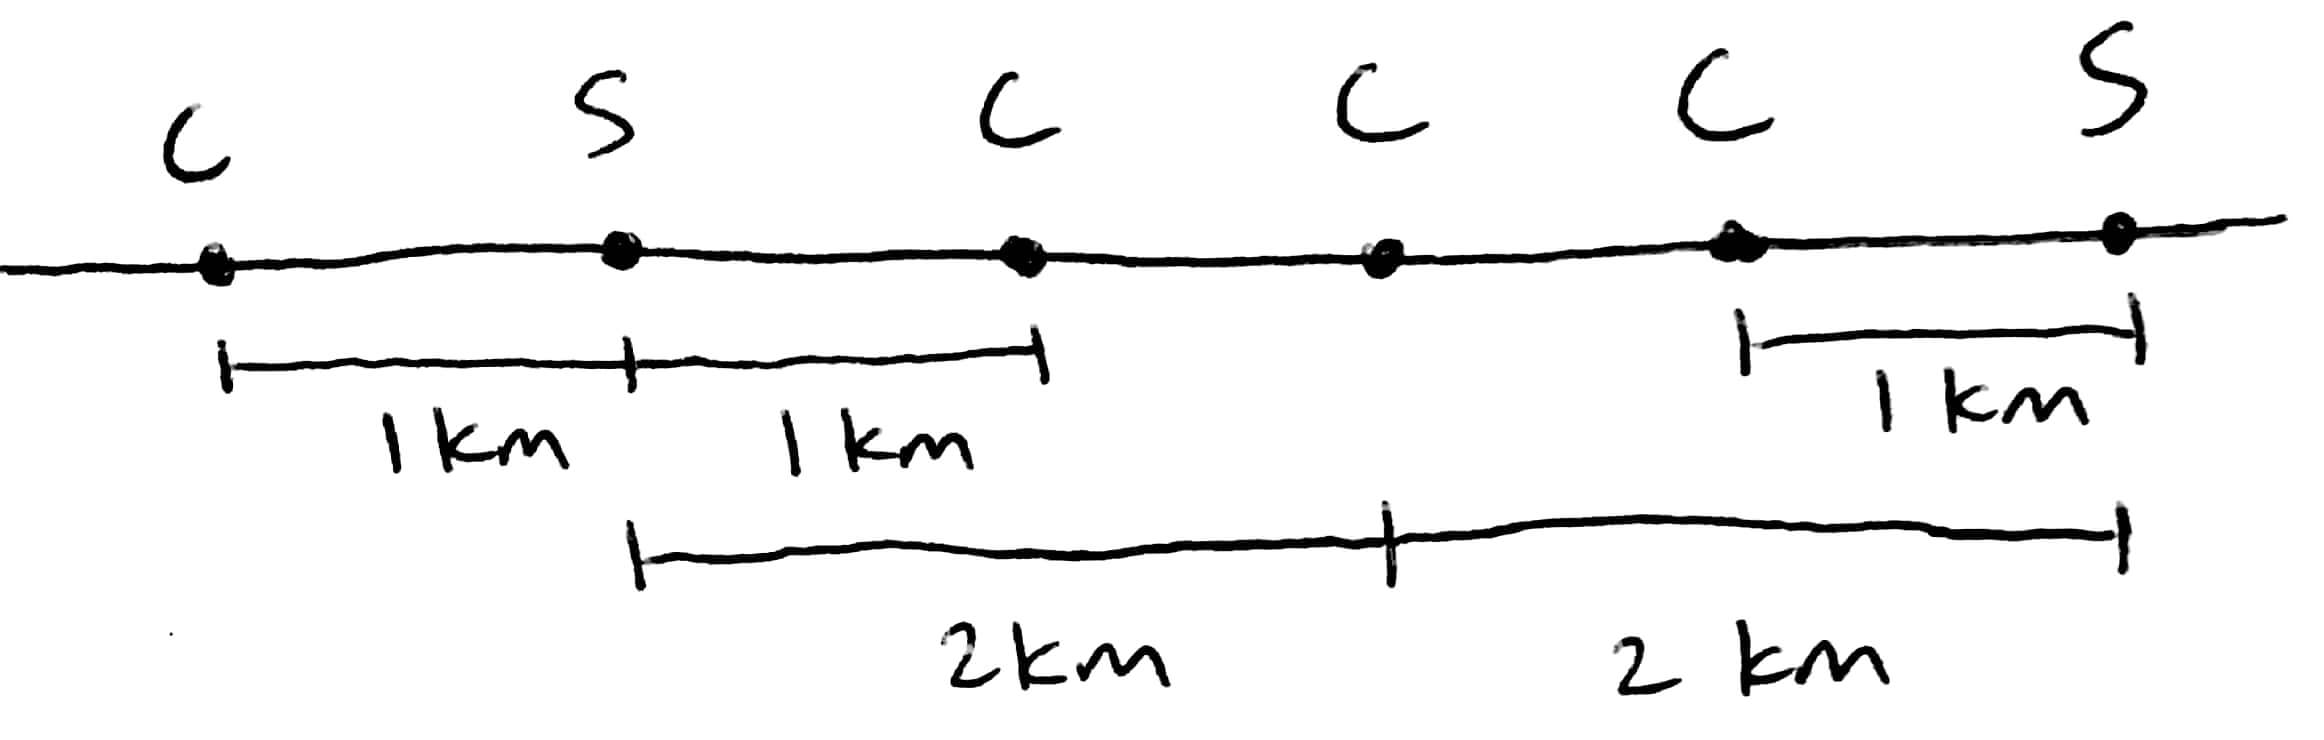 C S C C C S
1 km 1 km 1 km
2 km 2 km